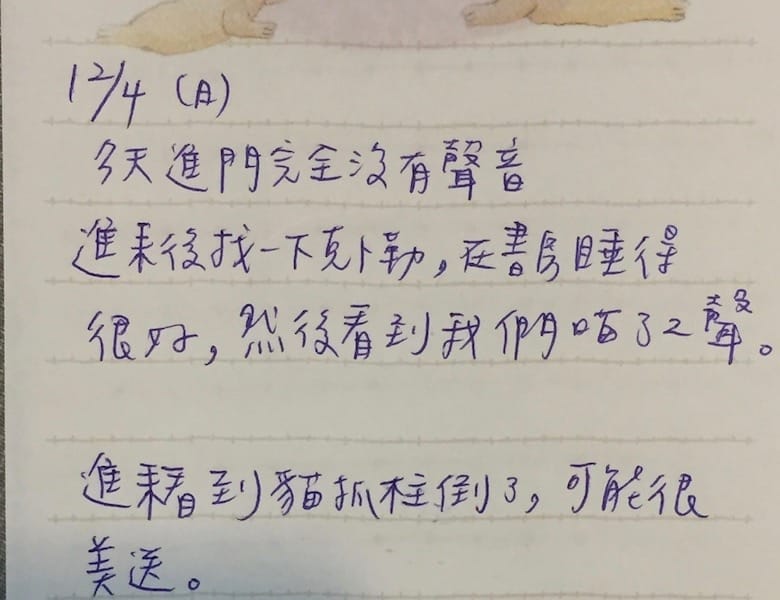 12/4 (日)
今天進門完全沒有聲音
進來後找一下克卜勒，在書房睡得
很好，然後看到我們喵了2聲。
進來看到貓抓柱倒了，可能很
美送。